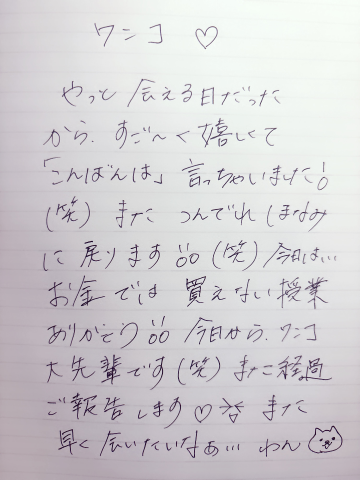 ワンコ ♡
やっと 会える日だった
から、すご〜く嬉しくて
「こんばんは」言っちゃいました!!
(笑) また つんでれ ほなみ
に 戻ります!! (笑) 今日は…
お金では 買えない授業
ありがとう!! 今日から、ワンコ
大先輩です(笑) また経過
ご報告します♡ また
早く会いたいなぁ… わん